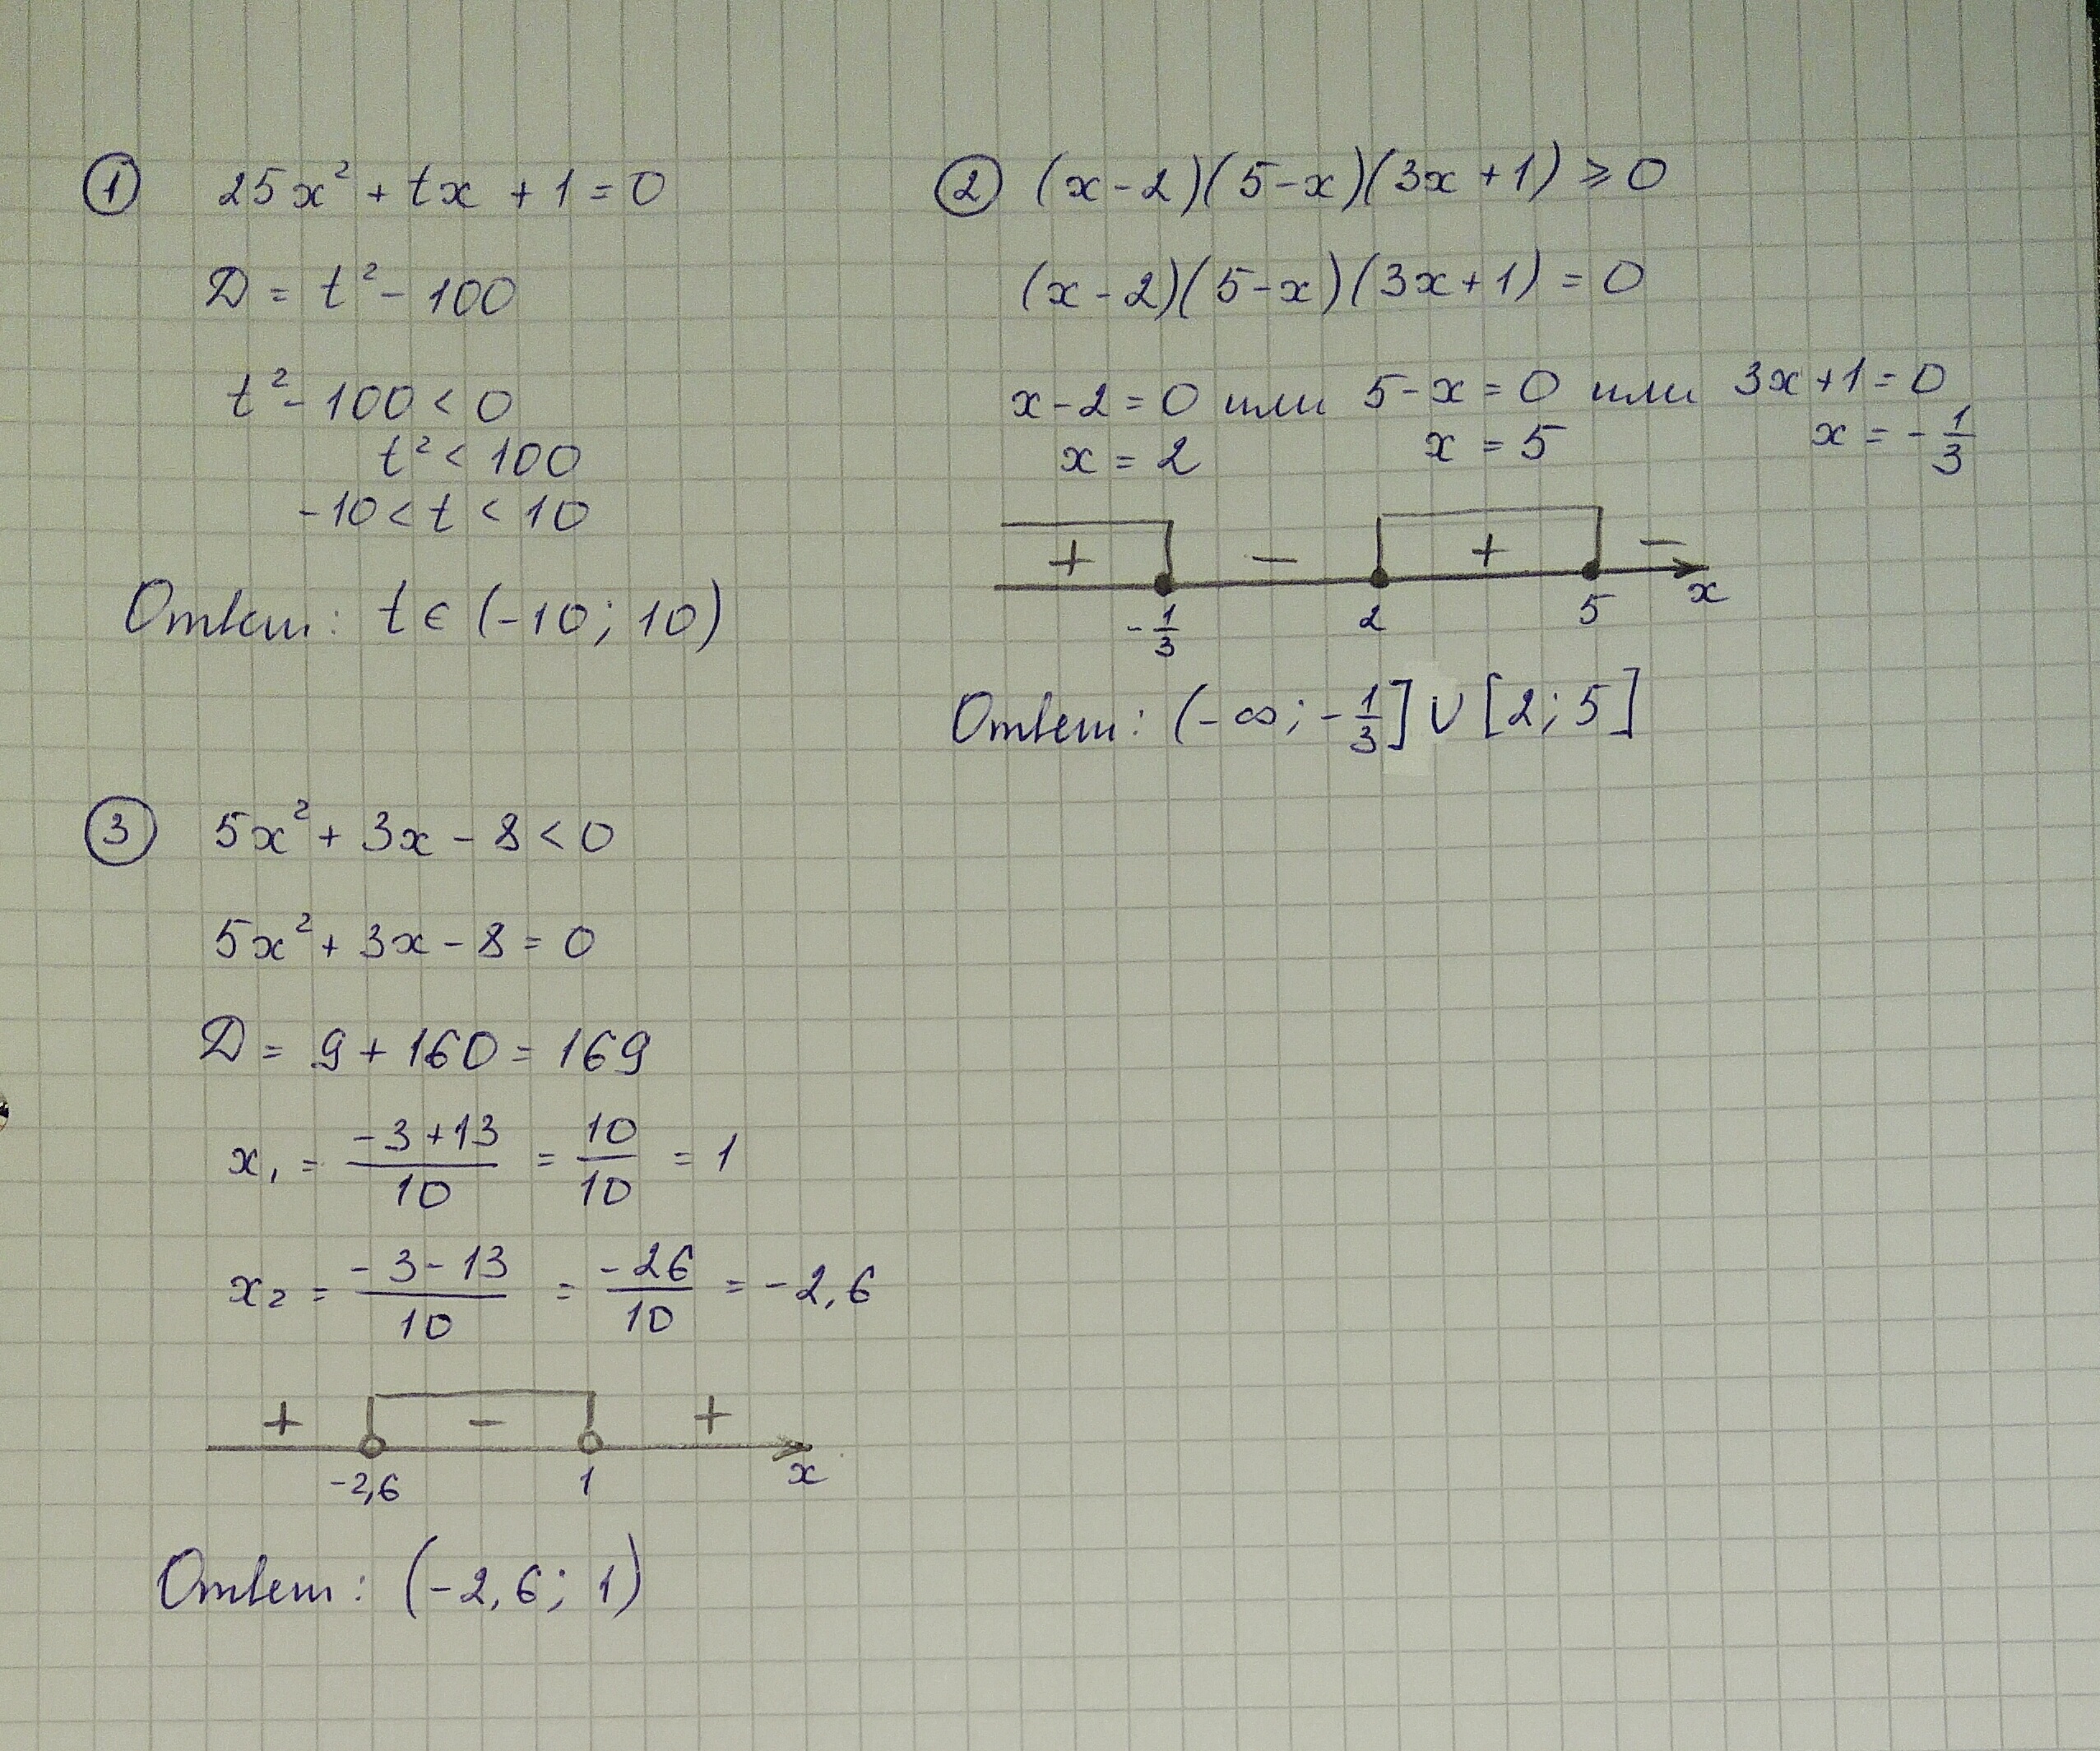 ① 25x² + tx + 1 = 0
D = t² - 100
t² - 100 < 0
t² < 100
-10 < t < 10
Ответ: t ∈ (-10; 10)
② (x - 2)(5 - x)(3x + 1) ⩾ 0
(x - 2)(5 - x)(3x + 1) = 0
x - 2 = 0 или 5 - x = 0 или 3x + 1 = 0
x = 2 x = 5 x = -1/3
+ - + -
-1/3 2 5 x
Ответ: (-∞; -1/3] ∪ [2; 5]
③ 5x² + 3x - 8 < 0
5x² + 3x - 8 = 0
D = 9 + 160 = 169
x₁ = (-3+13)/10 = 10/10 = 1
x₂ = (-3-13)/10 = -26/10 = -2,6
+ - +
-2,6 1 x
Ответ: (-2,6; 1)